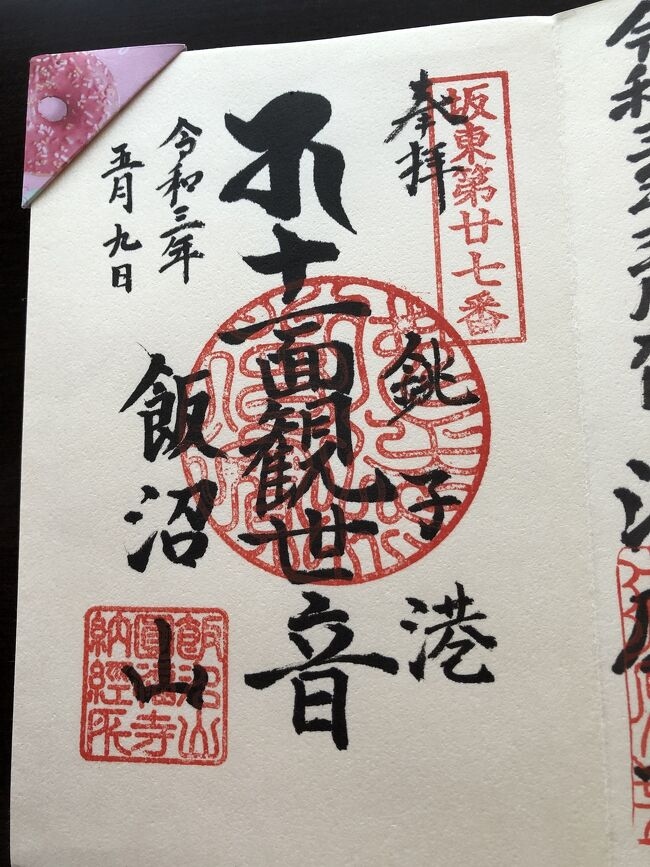 令和三年
坂東第廿七番
奉拝
銚子港
十一面観世音
令和三年
五月九日
飯沼山
飯沼山
圓福寺
納経所